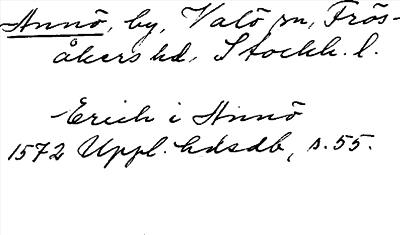 Annö, by, Vätö sn, Frös-
åkers hd, Stockh. l.
Erich i Annö
1572 Uppl. hdsdb, s. 55.